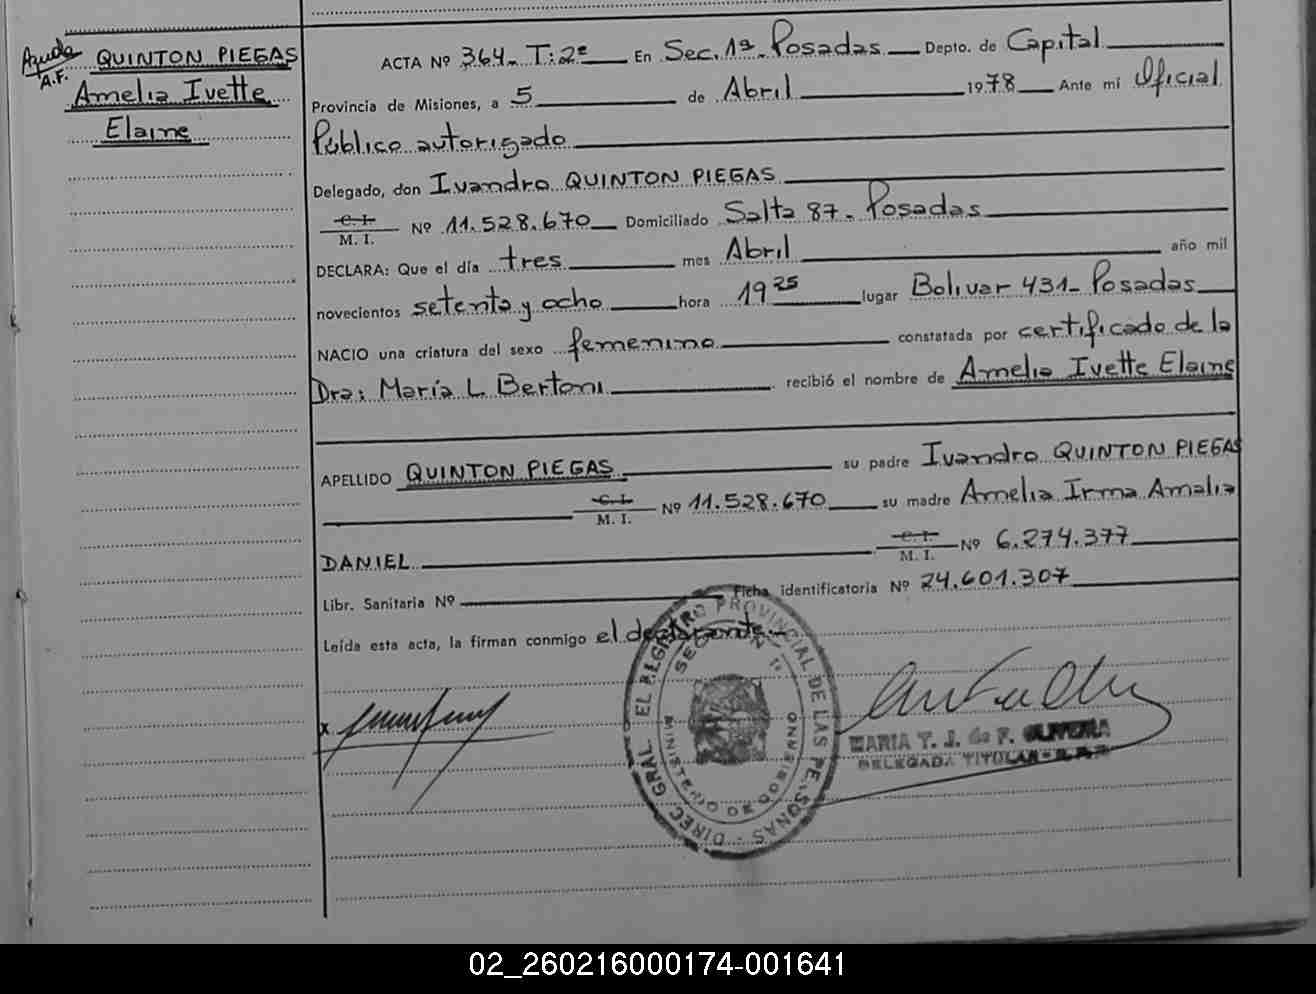 Ayuda
A.F.
QUINTON PIEGAS
Amelia Ivette
Elaine
ACTA Nº 364- T:2º En Sec. 1ª- Posadas Depto. de Capital
Provincia de Misiones, a 5 de Abril 1978 Ante mi Oficial
Público autorizado
Delegado, don Ivandro QUINTON PIEGAS
C. I.
M. I. Nº 11.528.670 Domiciliado Salta 87- Posadas
DECLARA: Que el día tres mes Abril año mil
novecientos setenta y ocho hora 19 25 lugar Bolivar 431- Posadas
NACIO una criatura del sexo femenino constatada por certificado de la
Dra: María L. Bertoni recibió el nombre de Amelia Ivette Elaine
APELLIDO QUINTON PIEGAS su padre Ivandro QUINTON PIEGAS
C. I.
M. I. Nº 11.528.670 su madre Amelia Irma Amalia
DANIEL C. I.
M. I. Nº 6.274.377
Libr. Sanitaria Nº Ficha identificatoria Nº 24.601.307
Leída esta acta, la firman conmigo el declarante.-
DIREC. GRAL. EL REGISTRO PROVINCIAL DE LAS PERSONAS
SECCION 1ª
MINISTERIO DE GOBIERNO
x
MARIA T. J. de F. OLIVERA
DELEGADA TITULAR - R.P.P.
02_260216000174-001641